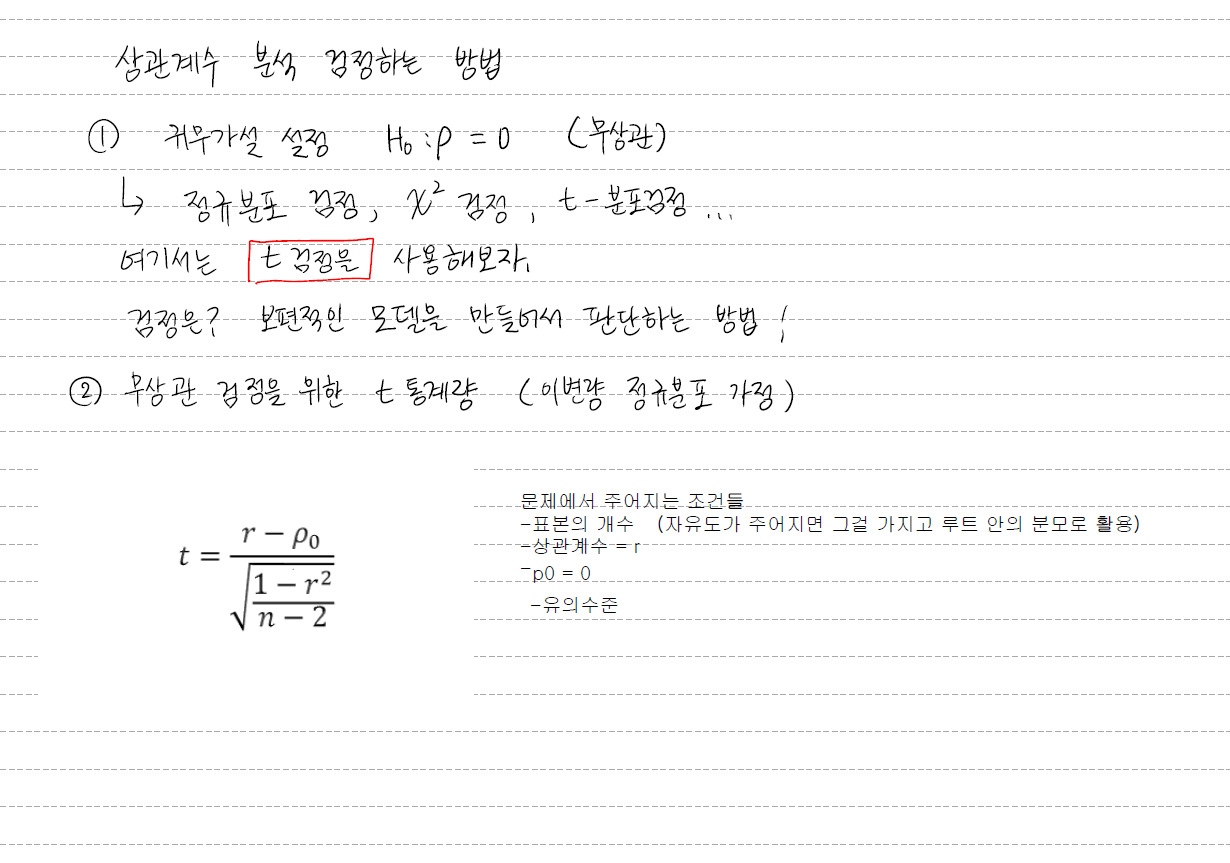 상관계수 분석 검정하는 방법
① 귀무가설 설정 H₀ : ρ = 0 (무상관)
↳ 정규분포 검정, χ² 검정, t-분포검정...
여기서는 t 검정을 사용해보자.
검정은? 보편적인 모델을 만들어서 판단하는 방법!
② 무상관 검정을 위한 t 통계량 (이변량 정규분포 가정)
t = (r − ρ₀) / √((1 − r²) / (n − 2))
문제에서 주어지는 조건들
-표본의 개수 (자유도가 주어지면 그걸 가지고 루트 안의 분모로 활용)
-상관계수 = r
-p0 = 0
-유의수준